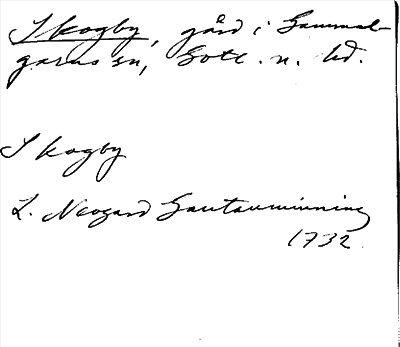 Skogby, gård i Gammel-
garns sn, Gotl. n. hd.
Skogby
L. Neogard Gautauminning
1732